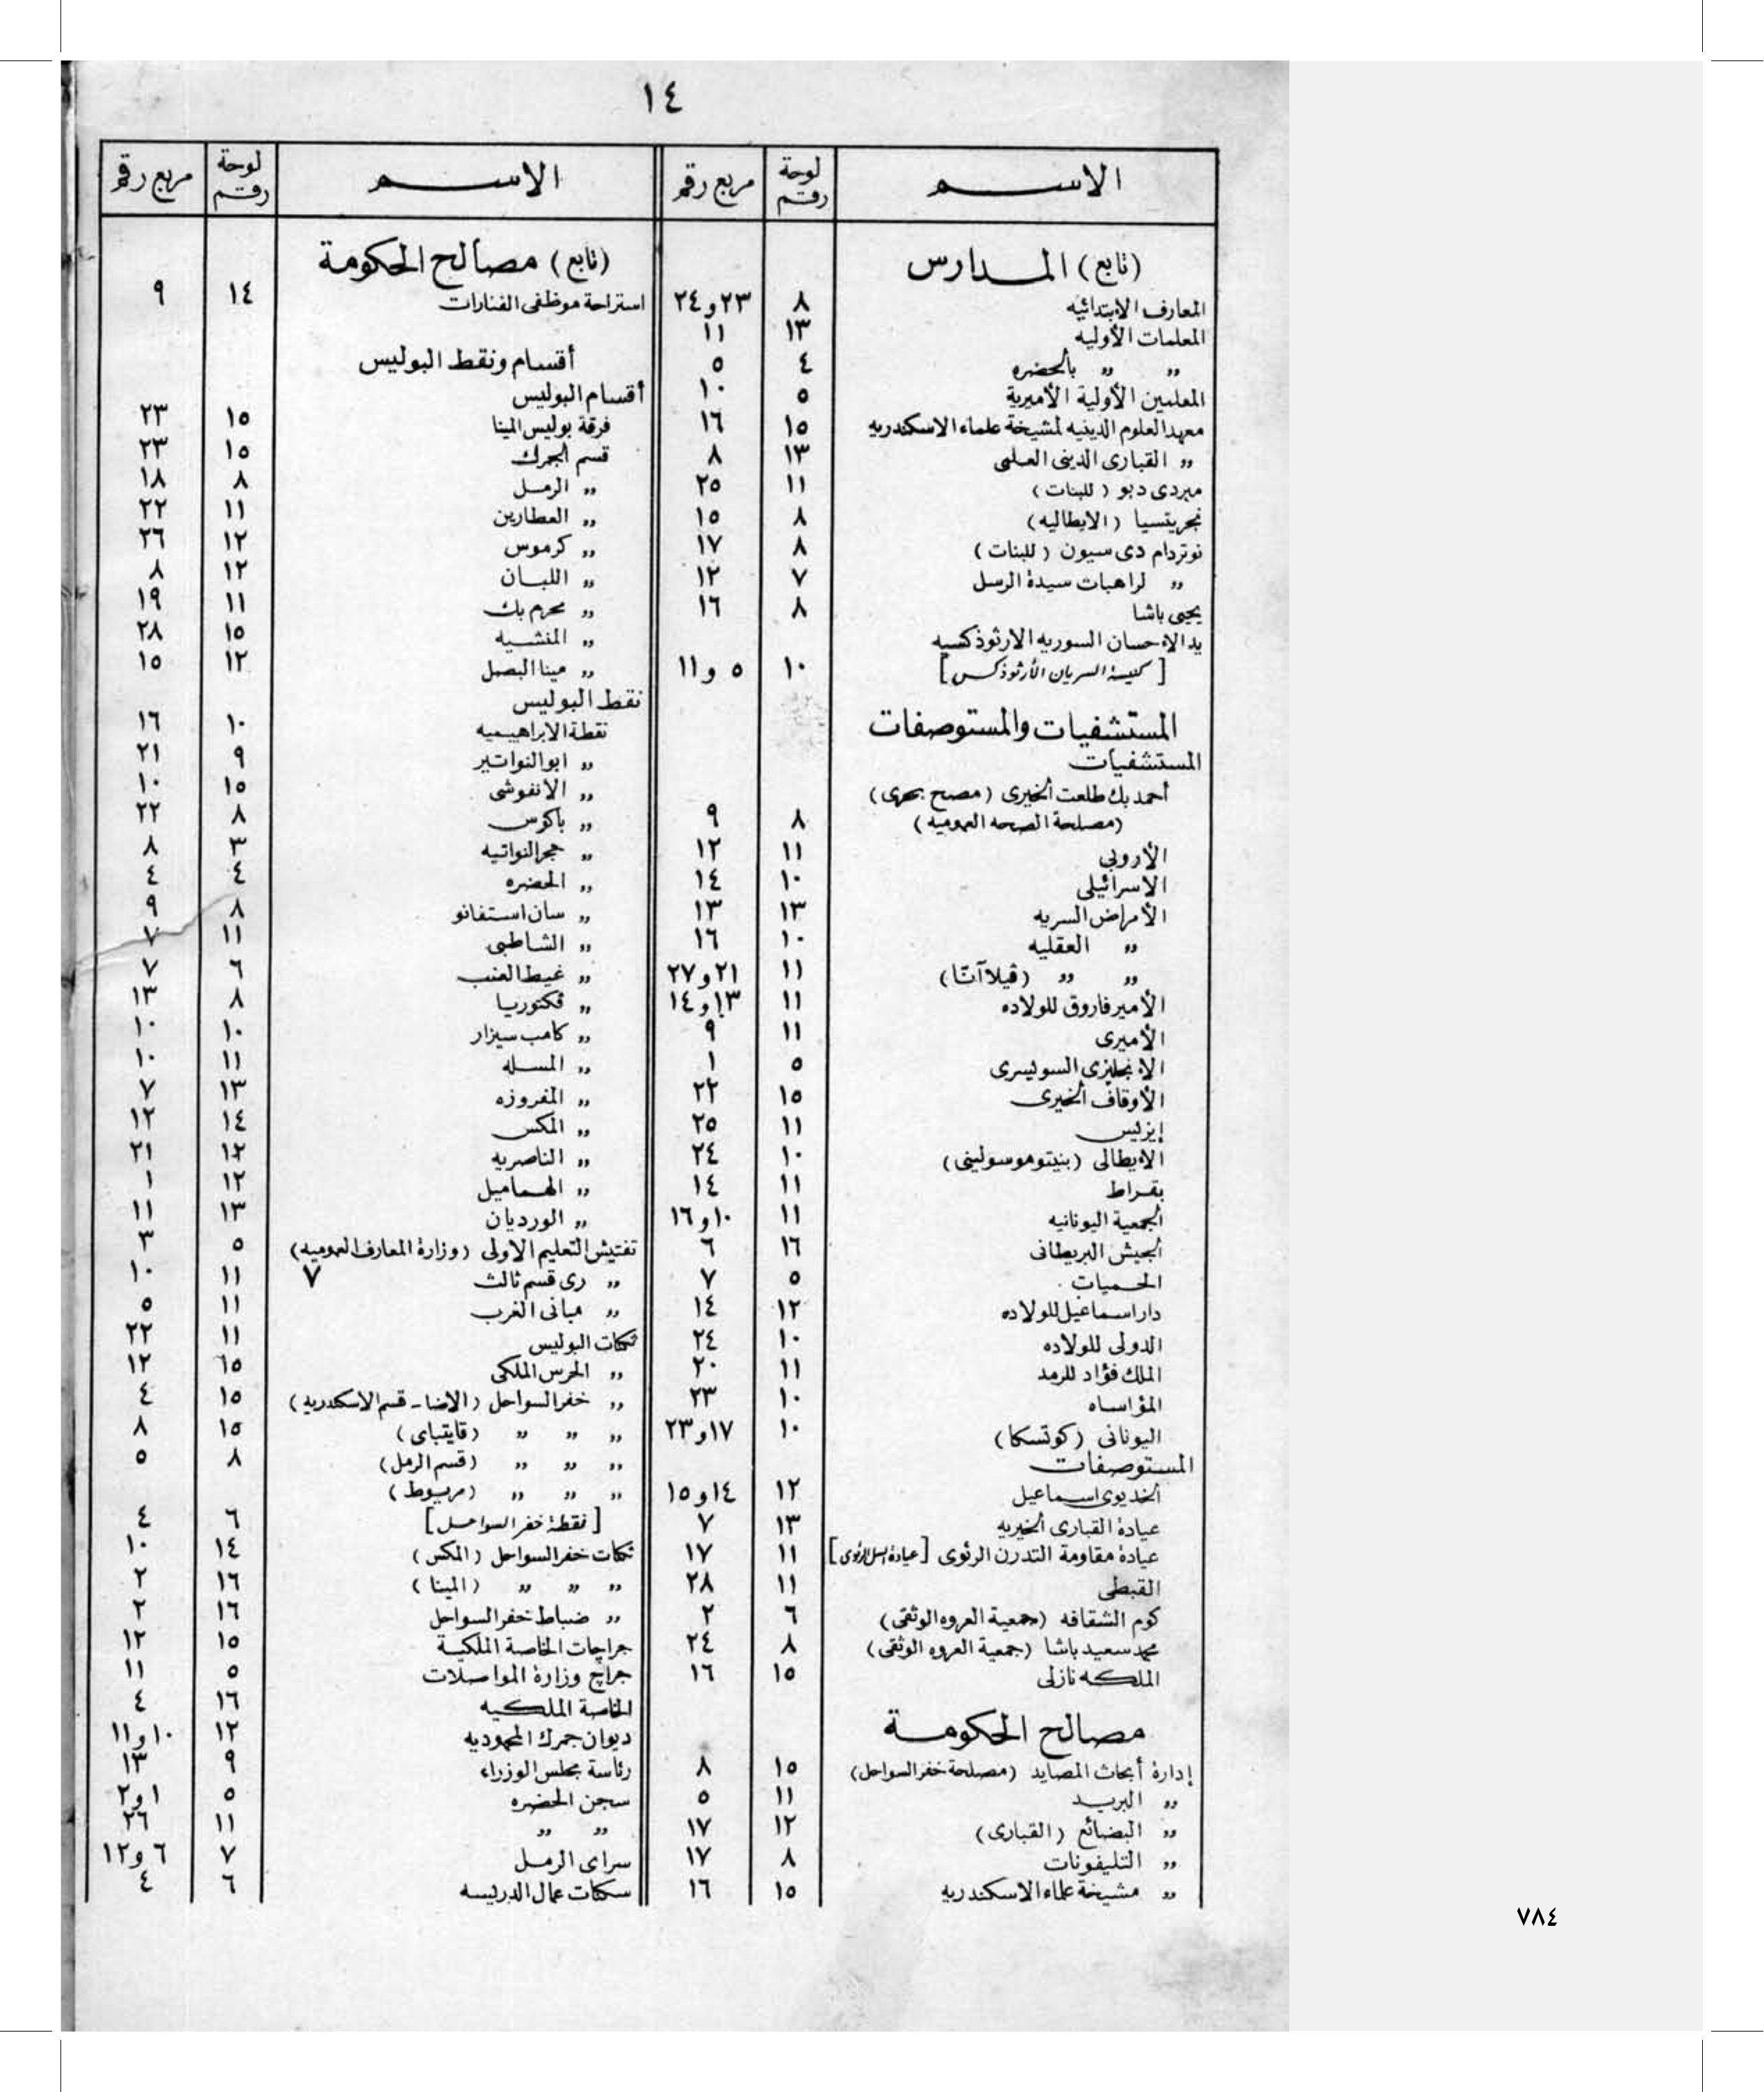 ١٤
الاســـم لوحة رقم مربع رقم
(تابع) المـدارس
المعارف الابتدائيه ٨ ٢٣ و ٢٤
المعلمات الأوليه ١٣ ١١
„ „ بالحضره ٤ ٥
المعلمين الأولية الأميرية ٥ ١٠
معهد العلوم الدينيه لمشيخة علماء الاسكندريه ١٥ ١٦
„ القبارى الدينى العلمى ١٣ ٨
ميردى ديو (للبنات) ١١ ٢٥
نجريتسيا (الايطاليه) ٨ ١٥
نوتردام دى سيون (للبنات) ٨ ١٧
„ لراهبات سيدة الرسل ٧ ١٢
يحيى باشا ٨ ١٦
يد الاحسان السوريه الارثوذكسيه
[كنيسة السريان الأرثوذكس] ١٠ ٥ و ١١
المستشفيات والمستوصفات
المستشفيات
أحمد بك طلعت الخيرى (مصح بحرى)
(مصلحة الصحه العموميه) ٨ ٩
الأروبى ١١ ١٢
الاسرائيلى ١٠ ١٤
الأمراض السريه ١٣ ١٣
„ العقليه ١٠ ١٦
„ „ (ڤيلا آنّا) ١١ ٢١ و ٢٧
الأمير فاروق للولاده ١١ ١٣ و ١٤
الأميرى ١١ ٩
الانجليزى السويسرى ٥ ١
الأوقاف الخيرى ١٥ ٢٢
إيزيس ١١ ٢٥
الايطالى (بنيتو موسولينى) ١٠ ٢٤
بقراط ١١ ١٤
الجمعية اليونانيه ١١ ١٠ و ١٦
الجيش البريطانى ١٦ ٦
الحميات ٥ ٧
دار اسماعيل للولاده ١٢ ١٤
الدولى للولاده ١٠ ٢٤
الملك فؤاد للرمد ١١ ٢٠
المؤاساه ١٠ ٢٣
اليونانى (كوتسكا) ١٠ ١٧ و ٢٣
المستوصفات
الخديوى اسماعيل ١٢ ١٤ و ١٥
عيادة القبارى الخيريه ١٣ ٧
عيادة مقاومة التدرن الرئوى [عيادة السل الرئوى] ١١ ١٧
القبطى ١١ ٢٨
كوم الشقافه (جمعية العروه الوثقى) ٦ ٢
محمد سعيد باشا (جمعية العروه الوثقى) ٨ ٢٤
الملكه نازلى ١٥ ١٦
مصالح الحكومـة
إدارة أبحاث المصايد (مصلحة خفر السواحل) ١٥ ٨
„ البريد ١١ ٥
„ البضائع (القبارى) ١٢ ١٧
„ التليفونات ٨ ١٧
„ مشيخة علماء الاسكندريه ١٥ ١٦
الاســـم لوحة رقم مربع رقم
(تابع) مصالح الحكومة
استراحة موظفى الفنارات ١٤ ٩
أقسام ونقط البوليس
أقسام البوليس
فرقة بوليس المينا ١٥ ٢٣
قسم الجمرك ١٥ ٢٣
„ الرمل ٨ ١٨
„ العطارين ١١ ٢٢
„ كرموس ١٢ ٢٦
„ اللبان ١٢ ٨
„ محرم بك ١١ ١٩
„ المنشيه ١٥ ٢٨
„ مينا البصل ١٢ ١٥
نقط البوليس
نقطة الابراهيميه ١٠ ١٦
„ ابو النواتير ٩ ٢١
„ الأنفوشى ١٥ ١٠
„ باكوس ٨ ٢٢
„ حجر النواتيه ٣ ٨
„ الحضره ٤ ٤
„ سان استفانو ٨ ٩
„ الشاطبى ١١ ٧
„ غيط العنب ٦ ٧
„ ڤكتوريا ٨ ١٣
„ كامب سيزار ١٠ ١٠
„ المسله ١١ ١٠
„ المفروزه ١٣ ٧
„ المكس ١٤ ١٢
„ الناصريه ١٢ ٢١
„ الهماميل ١٢ ١
„ الورديان ١٣ ١١
تفتيش التعليم الاولى (وزارة المعارف العموميه) ٥ ٣
„ رى قسم ثالث ٧ ١١ ١٠
„ مبانى الغرب ١١ ٥
ثكنات البوليس ١١ ٢٢
„ الحرس الملكى ١٥ ١٢
„ خفر السواحل (الاضا ـ قسم الاسكندريه) ١٥ ٤
„ „ „ (قايتباى) ١٥ ٨
„ „ „ (قسم الرمل) ٨ ٥
„ „ „ (مريوط)
[نقطة خفر السواحل] ٦ ٤
ثكنات خفر السواحل (المكس) ١٤ ١٠
„ „ „ (المينا) ١٦ ٢
„ ضباط خفر السواحل ١٦ ٢
جراجات الخاصة الملكية ١٥ ١٢
جراج وزارة المواصلات ٥ ١١
الخاصة الملكيه ١٦ ٤
ديوان جمرك المحموديه ١٢ ١٠ و ١١
رئاسة مجلس الوزراء ٩ ١٣
سجن الحضره ٥ ١ و ٢
„ „ ١١ ٢٦
سراى الرمل ٧ ٦ و ١٢
سكنات عمال الدريسه ٦ ٤
٧٨٤